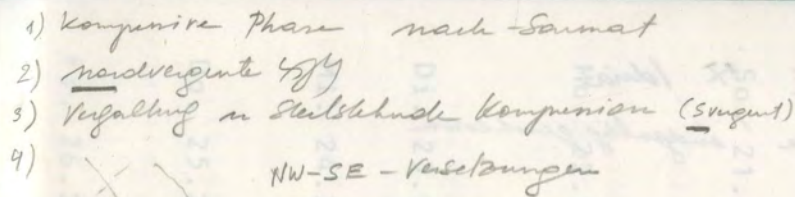 1) kompressive Phase nach-Sarmat
2) nordvergente
3) Verfaltung u steilstehende Kompression (Svergent)
4) NW-SE-Versetzungen